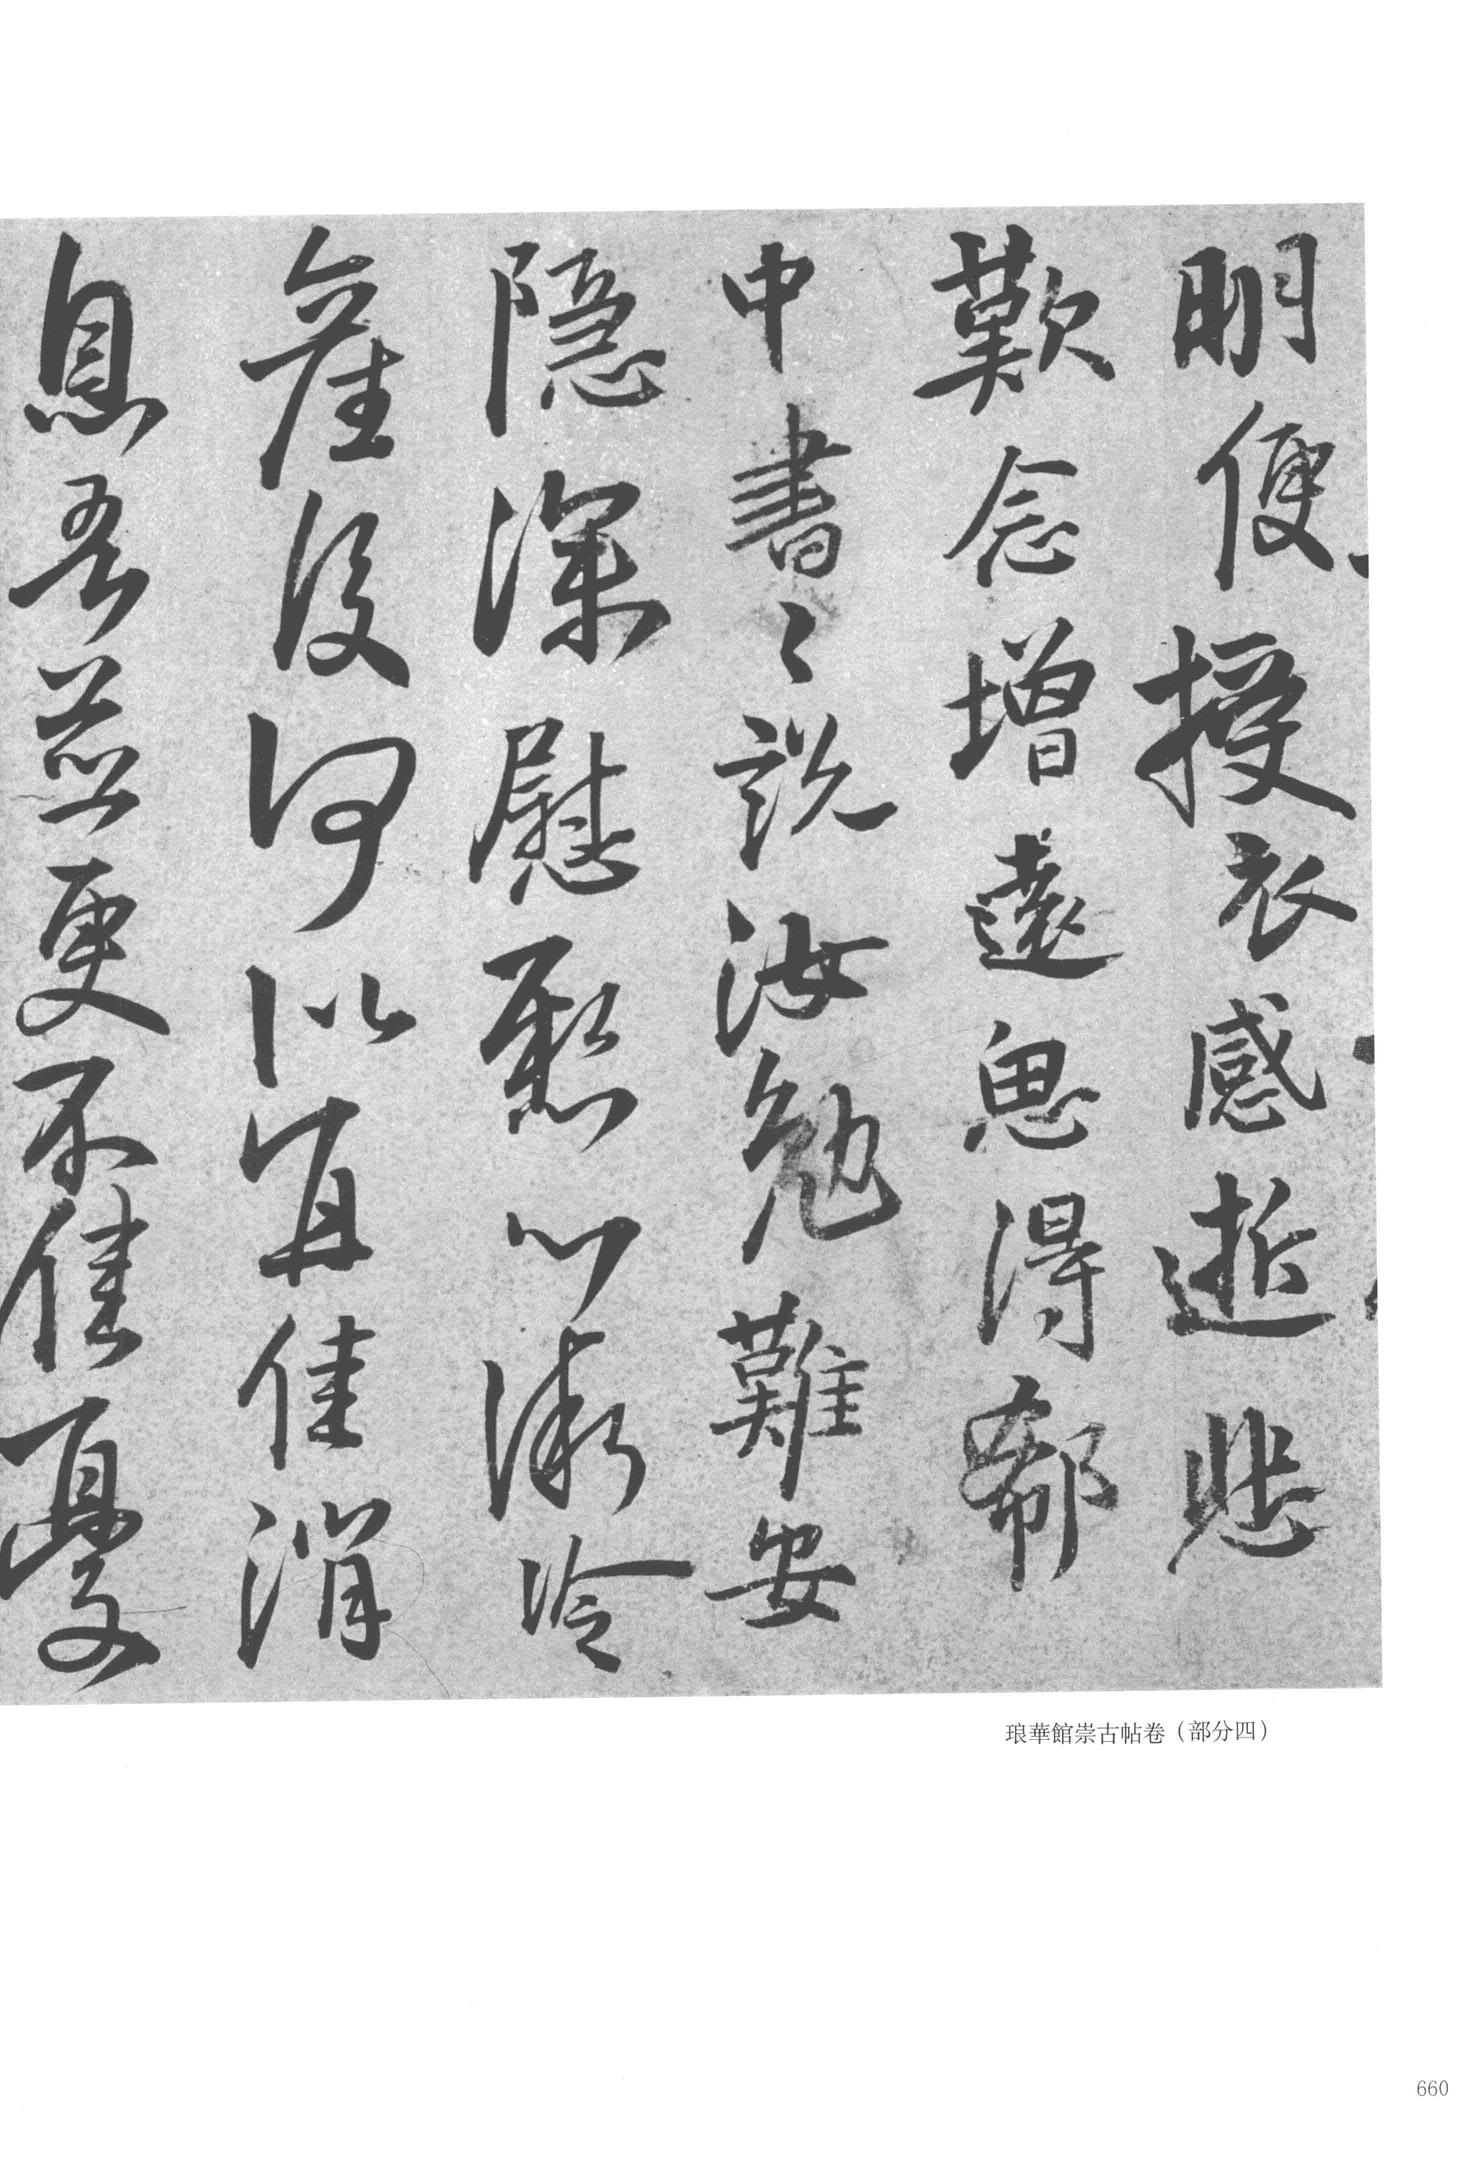 明便授衣感逝悲
歎念增遠思得郗
中書〻說汝勉難安
隱深慰懸心漸冷
產後何以宜佳消
息吾並更不佳憂
琅華館崇古帖卷（部分四）
660